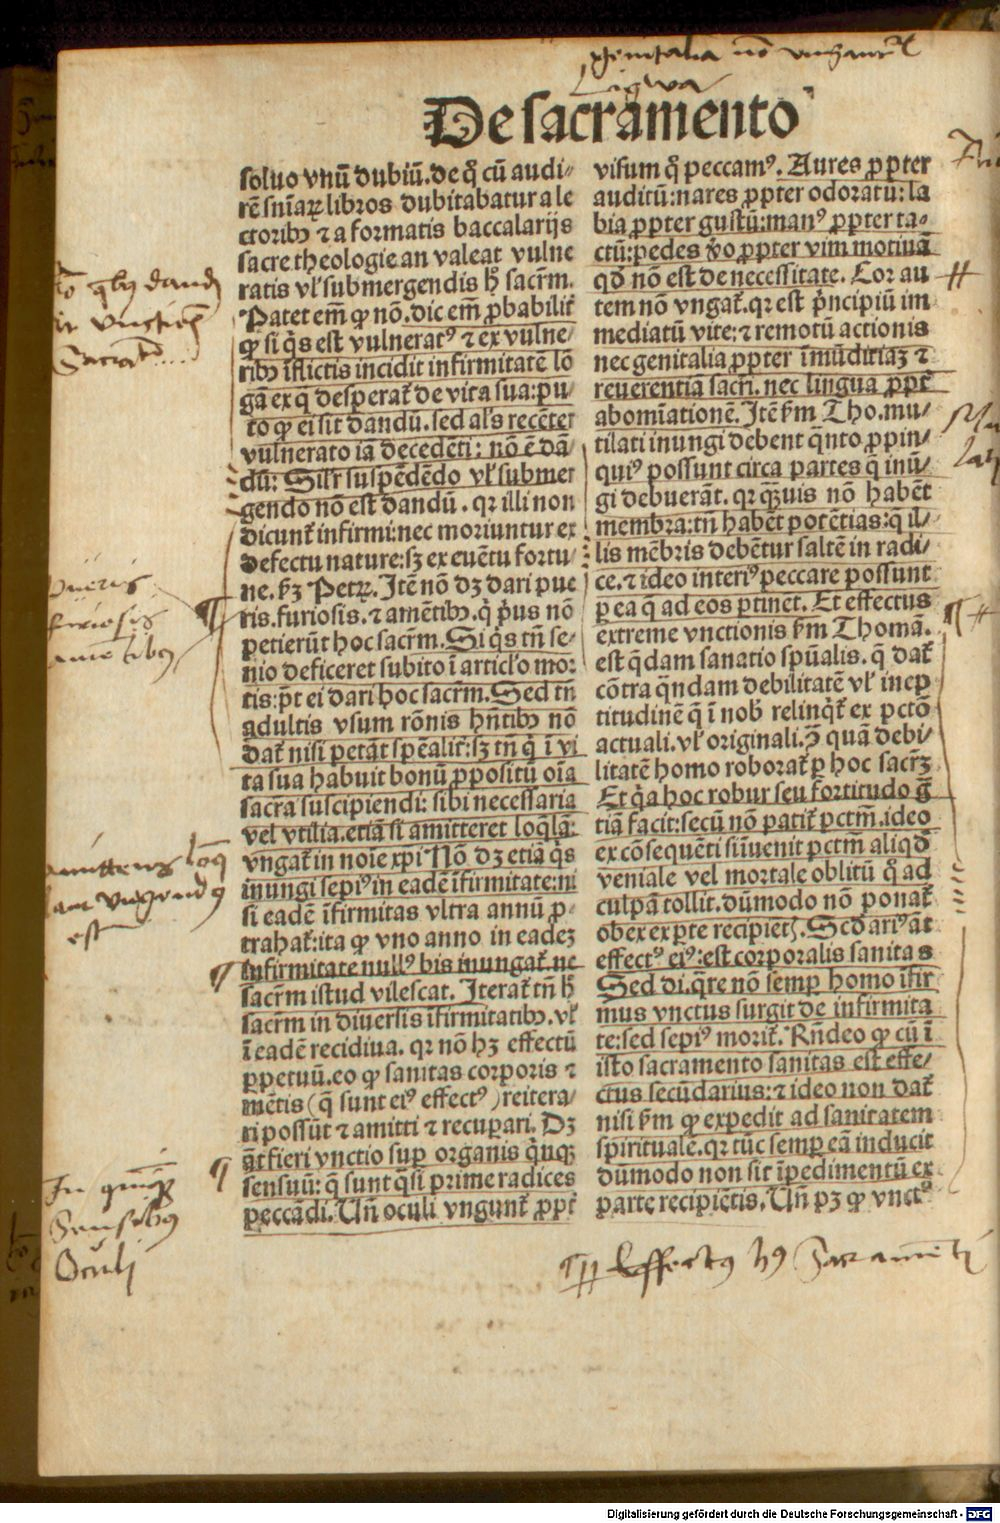 genitalia nō vngant᷑
Ligwa
De sacramento
soluo vnū dubiū. de q̊ cū audi⸗
rē sn̄iaꝝ libros dubitabatur a le
ctoribꝫ ⁊ a formatis baccalarijs
sacre theologie an valeat vulne
ratis vl̓ submergendis h̓ sacr̄m.
Patet em̄ ꝙ nō. dic em̄ ꝓbabilit̓
ꝙ si q̇s est vulneratꝰ ⁊ ex vulne⸗
ribꝫ īflictis incidit infirmitatē lō
gā ex q̄ desperat᷑ de vita sua: pu⸗
to ꝙ ei sit dandū. sed al̓s recēter
vulnerato iā decedēti: nō ē dā⸗
dū: Sil̓r suspēdēdo vl̓ submer
gendo nō est dandū. qr illi non
dicunt᷑ infirmi: nec moriuntur ex
defectu nature: sꝫ ex euētu fortu⸗
ne. ẜm Petꝝ. Itē nō dꝫ dari pue
ris. furiosis. ⁊ amētibꝫ. q̇ pͥus nō
petierūt hoc sacr̄m. Si q̇s tn̄ se⸗
nio deficeret subito ī articl̓o mor
tis: pōt ei dari hoc sacr̄m. Sed tn̄
adultis vsum rōnis hn̄tibꝫ nō
dat᷑ nisi petāt spēalit̓: sꝫ tn̄ q̇ ī vi
ta sua habuit bonū ꝓpositū oīa
sacra suscipiendi: sibi necessaria
vel vtilia. etiā si amitteret loq̄lā:
vngat᷑ in noīe xp̄i Nō dꝫ etiā q̇s
inungi sepiꝰ in eadē īfirmitate: ni
si eadē īfirmitas vltra annū ꝓ⸗
trahat᷑: ita ꝙ vno anno in eadeꝫ
infirmitate nullꝰ bis inungat᷑. ne
sacr̄m istud vilescat. Iterat᷑ tn̄ h̓
sacr̄m in diuersis īfirmitatibꝫ. vl̓
ī eadē recidiua. qr nō hꝫ effectū
ꝑpetuū. eo ꝙ sanitas corporis ⁊
mētis (q̄ sunt eiꝰ effectꝰ) reitera⸗
ri possūt ⁊ amitti ⁊ recuꝑari. Dꝫ
āt fieri vnctio suꝑ organis q̇nqꝫ
sensuū: q̄ sunt q̄si prime radices
peccādi. Un̄ oculi vngunt᷑ ꝓpt̓
visum q̊ peccamꝰ. Aures ꝓpter
auditū: nares ꝓpter odoratū: la
bia ꝓpter gustū: manꝰ ꝓpter ta⸗
ctū: pedes v̊o ꝓpter vim motiuā
qd̄ nō est de necessitate. Cor au
tem nō vngat᷑. qr est pͥncipiū im
mediatū vite: ⁊ remotū actionis
nec genitalia ꝓpter īmūditiaꝫ ⁊
reuerentiā sacri. nec lingua ꝓpt̓
abomīationē. Itē ẜm Tho. mu⸗
tilati inungi debent q̄nto ꝓpin⸗
quiꝰ possunt circa partes q̄ inū⸗
gi debuerāt. qr q̄ꝫuis nō habēt
membra: tn̄ habēt potētias: q̄ il⸗
lis mēbris debētur saltē in radi⸗
ce. ⁊ ideo interiꝰ peccare possunt
ꝑ ea q̄ ad eos ꝑtinet. Et effectus
extreme vnctionis ẜm Thomā.
est q̄dam sanatio spūalis. q̄ dat᷑
cōtra q̄ndam debilitatē vl̓ inep
titudinē q̄ ī nob̓ relinq̇t᷑ ex pctō
actuali. vl̓ originali. ꝯ̄ quā debi⸗
litatē homo roborat᷑ ꝑ hoc sacrꝫ
Et q̇a hoc robur seu fortitudo g̅
tiā facit: secū nō patit᷑ pctm̄. ideo
ex cōsequēti si īuenit pctm̄ aliqd̄
veniale vel mortale oblitū q̊ ad
culpā tollit. dūmodo nō ponat᷑
obex ex ꝑte recipiētꝭ. Scd̄ariꝰ āt
effectꝰ eiꝰ: est corporalis sanitas
Sed di. q̄re nō semꝑ homo īfir
mus vnctus surgit de infirmita
te: sed sepiꝰ morit᷑. Rn̄deo ꝙ cū ī
isto sacramento sanitas est effe⸗
ctus secūdarius: ⁊ ideo non dat᷑
nisi ẜm ꝙ expedit ad sanitatem
spiritualē. qr tūc semꝑ eā inducit
dūmodo non sit īpedimentū ex
parte recipiētis. Un̄ pꝫ ꝙ vnctꝰ
pueris
furiosis
amētibꝫ
amittens loq̄
lam vngendꝰ
est
In quinqꝫ
Sensibꝰ
Oculi
Effectus hꝰ Sacramēti
Digitalisierung gefördert durch die Deutsche Forschungsgemeinschaft - DFG